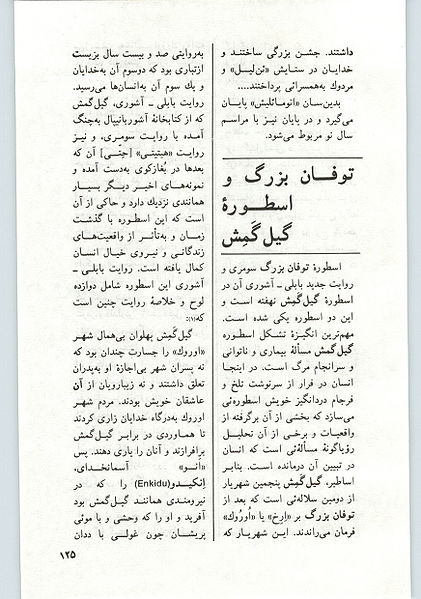 داشتند. جشن بزرگی ساختند و
خدایان در ستایش «ئن‌لیل» و
مردوك به‌همسرائی پرداختند....
بدین‌سان «انومائلیش» پایان
می‌گیرد و در پایان نیز با مراسم
سال نو مربوط می‌شود.
توفان بزرگ و
اسطورهٔ
گیل‌گَمِش
اسطورهٔ توفان بزرگ سومری و
روایت جدید بابلی ـ آشوری آن در
اسطورهٔ گیل‌گَمِش نهفته است و
این دو اسطوره یکی شده است.
مهم‌ترین انگیزهٔ تشکل اسطوره
گیل‌گمش مسألهٔ بیماری و ناتوانی
و سرانجام مرگ است. در اینجا
انسان در فرار از سرنوشت تلخ و
فرجام دردانگیز خویش اسطوره‌ئی
می‌سازد که بخشی از آن برگرفته از
واقعیات و برخی از آن تحلیل
رؤیاگونهٔ مسأله‌ئی است که انسان
در تبیین آن درمانده است. بنابر
اساطیر، گیل‌گَمِش پنجمین شهریار
از دومین سلاله‌ئی است که بعد از
توفان بزرگ بر «اِرِخ» یا «اُورُوك»
فرمان می‌راندند. این شهریار که
به‌روایتی صد و بیست سال بزیست
ازتباری بود که دوسوم آن به‌خدایان
و یك سوم آن به‌انسان‌ها می‌رسید.
روایت بابلی ـ آشوری، گیل‌گمش
که از کتابخانهٔ آشوربانیپال به‌چنگ
آمده با روایت سومری، و نیز
روایت «هیتیتی» [حِتّی] آن که
بعدها در بُغازکوی به‌دست آمده و
نمونه‌های اخیر دیگر بسیار
همانندی نزدیك دارد و حاکی از آن
است که این اسطوره با گذشت
زمان و به‌تأثر از واقعیت‌های
زندگانی و نیروی خیال انسان
کمال یافته است. روایت بابلی ـ
آشوری این اسطوره شامل دوازده
لوح و خلاصهٔ روایت چنین است
که(۱):
گیل‌گَمِش پهلوان بی‌همال شهر
«اوروك» را جسارت چندان بود که
نه پسران شهر بی‌اجازهٔ او به‌پدران
تعلق داشتند و نه زیبارویان از آن
عاشقان خویش بودند. مردم شهر
اوروك به‌درگاه خدایان زاری کردند
تا هماوردی در برابر گیل‌گمش
برافرازند و آنان را یاری دهند. پس
«آنو» آسمانخدای،
اِنکیدو(Enkidu) را که در
نیرومندی همانند گیل‌گمش بود
آفرید و او را که وحشی و با موئی
پریشان چون غولی با ددان
۱۲۵